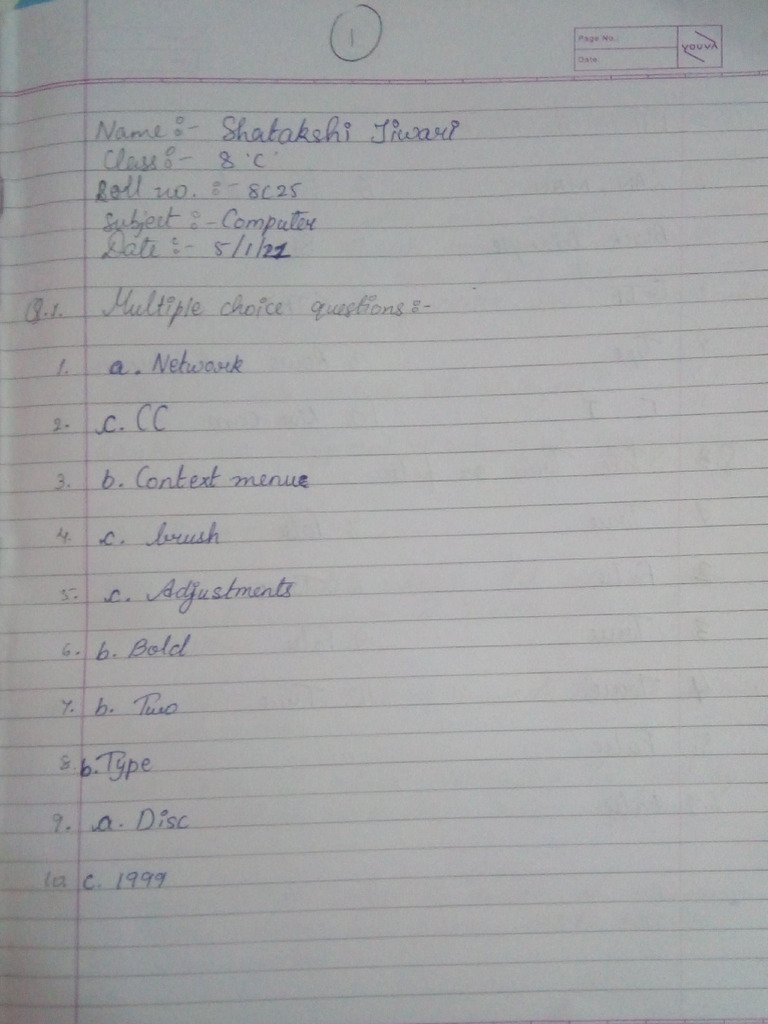 1
Page No.:
Date:
YOUVA
Name :- Shatakshi Tiwari
Class :- 8 'C'
Roll no. :- 8C25
Subject :- Computer
Date :- 5/1/21
Q.1. Multiple choice questions :-
1. a. Netwark
2. c. CC
3. b. Context menue
4. c. brush
5. c. Adjustments
6. b. Bold
7. b. Two
8. b. Type
9. a. Disc
10 c. 1999